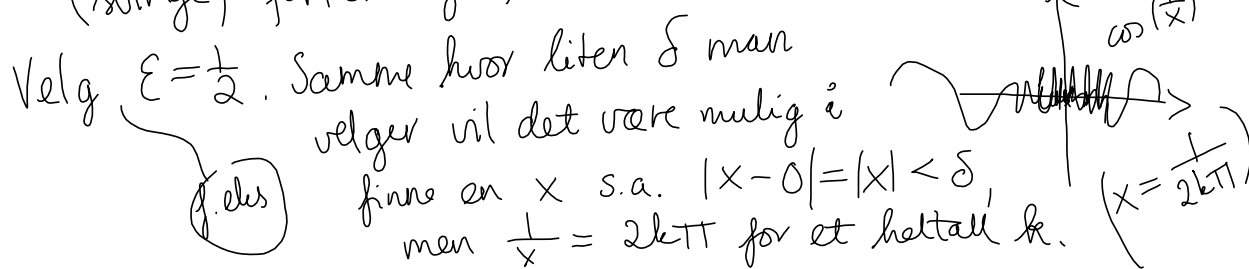 cos(1/x)
Velg ε = 1/2. Samme hvor liten δ man
velger vil det være mulig å
f.eks
finne en x s.a. |x-0|=|x| < δ,
men 1/x = 2kπ for et heltall k.
(x = 1/2kπ)